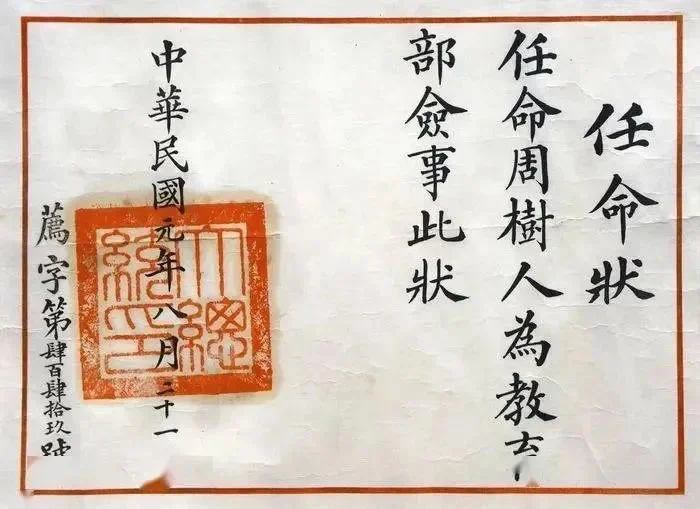 任命狀
任命周樹人為教育
部僉事此狀
中華民國元年八月二十一
薦字第肆百肆拾玖號
大總統印